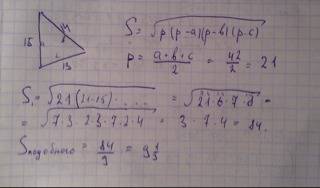 14
15
13
S = √p(p-a)(p-b)(p-c)
p = a+b+c/2 = 42/2 = 21
S₁ = √21(21-15)..... = √21·6·7·8 =
= √7·3·2·3·7·2·4 = 3·7·4 = 84.
Sподобного = 84/9 = 9 1/3